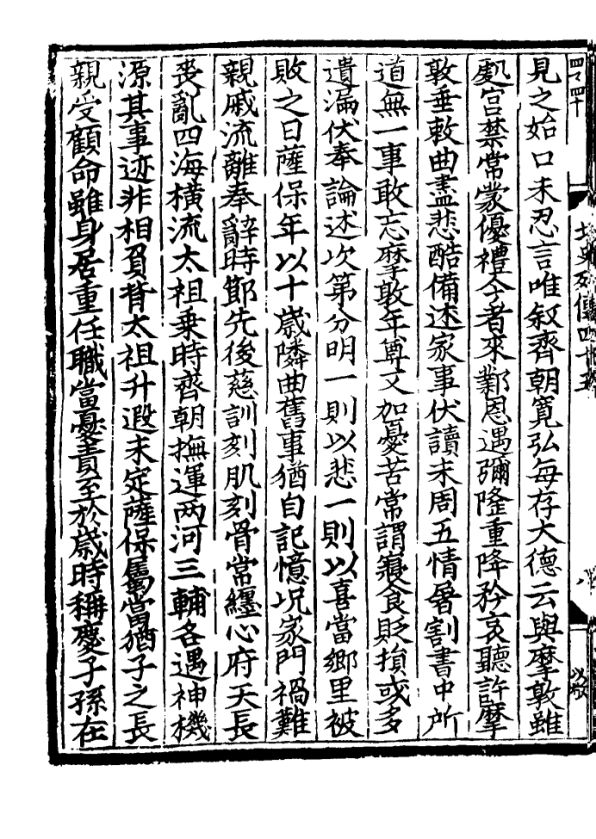 見之始口未忍言唯叙齊朝寛弘每存大德云與摩敦雖
處宫禁常蒙優禮今者來鄴恩遇彌隆重降矜哀聽許摩
敦垂敕曲盡悲酷備述家事伏讀未周五情屠割書中所
道無一事敢忘摩敦年尊又加憂苦常謂寢食貶損或多
遺漏伏奉論述次第分明一則以悲一則以喜當鄉里被
敗之日薩保年以十歳隣曲舊事猶自記憶况家門禍難
親戚流離奉辭時節先後慈訓刻肌刻骨常纏心府天長
喪亂四海橫流太祖乗時齊朝撫運两河三輔各遇神機
源其事迹非相負背太祖升遐未定薩保屬當猶子之長
親受顧命雖身居重任職當憂責至於歳時稱慶子孫在